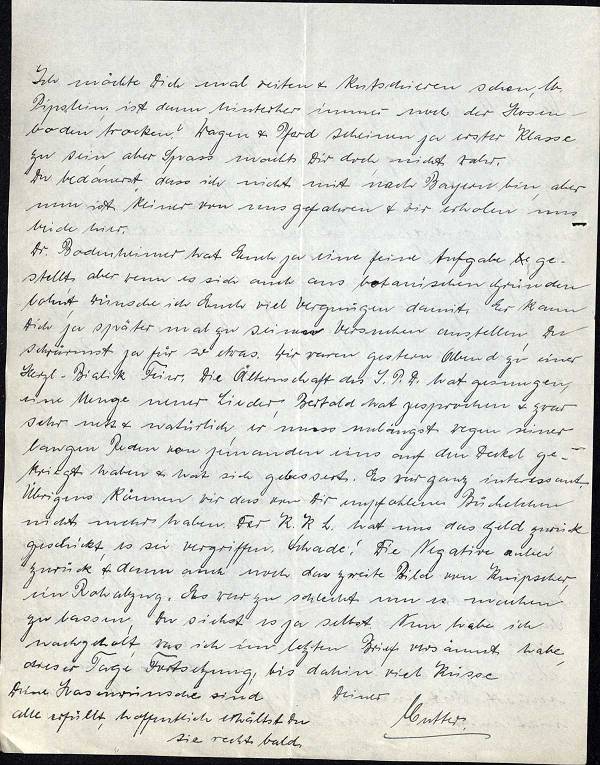 Ich möchte Dich mal reiten & kutschieren sehen, ob
Pipslein, ist denn hinterher immer noch der Hosen-
boden trocken? Wagen & Pferd scheinen ja erster Klasse
zu sein, aber Spass machts Dir doch nicht wahr.
Du bedauerst, dass ich nicht mit nach Bayern bin, aber
nun ist keiner von uns gefahren & wir erholen uns
beide hier.
Dr. Bodenheimer hat Euch ja eine feine Aufgabe ge-
stellt, aber wenn es sich auch aus botanischen Gründen
lohnt, wünsche ich Euch viel Vergnügen damit. Er kann
Dich ja später mal zu seinen Versuchen anstellen, Du
schwärmst ja für so etwas. Wir waren gestern Abend zu einer
Herzl-Bialik Feier. Die Älternschaft des J.P.D. hat gesungen,
eine Menge neuer Lieder, Bertold hat gesprochen & zwar
sehr nett & natürlich, er muss unlängst wegen seiner
langen Reden von jemanden eins auf den Deckel ge-
kriegt haben & hat sich gebessert. Es war ganz interessant.
Übrigens können wir das von Dir empfohlene Büchelchen
nicht mehr haben. Der K.K.L. hat uns das Geld zurück
geschickt, es sei vergriffen. Schade! Die Negative anbei
zurück & dann auch noch das zweite Bild von Knipscher,
ein Rohabzug. Es war zu schlecht um es machen
zu lassen, Du siehst es ja selbst. Nun habe ich
nachgeholt was ich im letzten Brief versäumt habe,
dieser Tage Fortsetzung, bis dahin viel Küsse
Deiner
Mutter.
Deine Hosenwünsche sind
alle erfüllt, hoffentlich erhältst Du
sie recht bald.